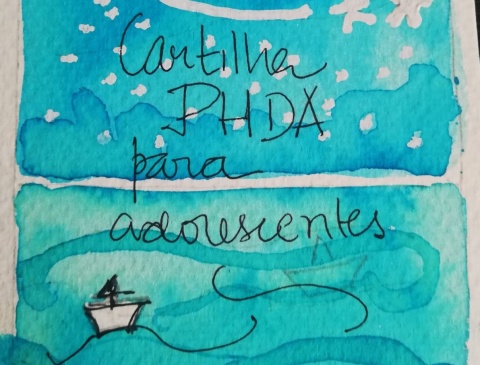 Cartilha
PHDA
para
adolescentes